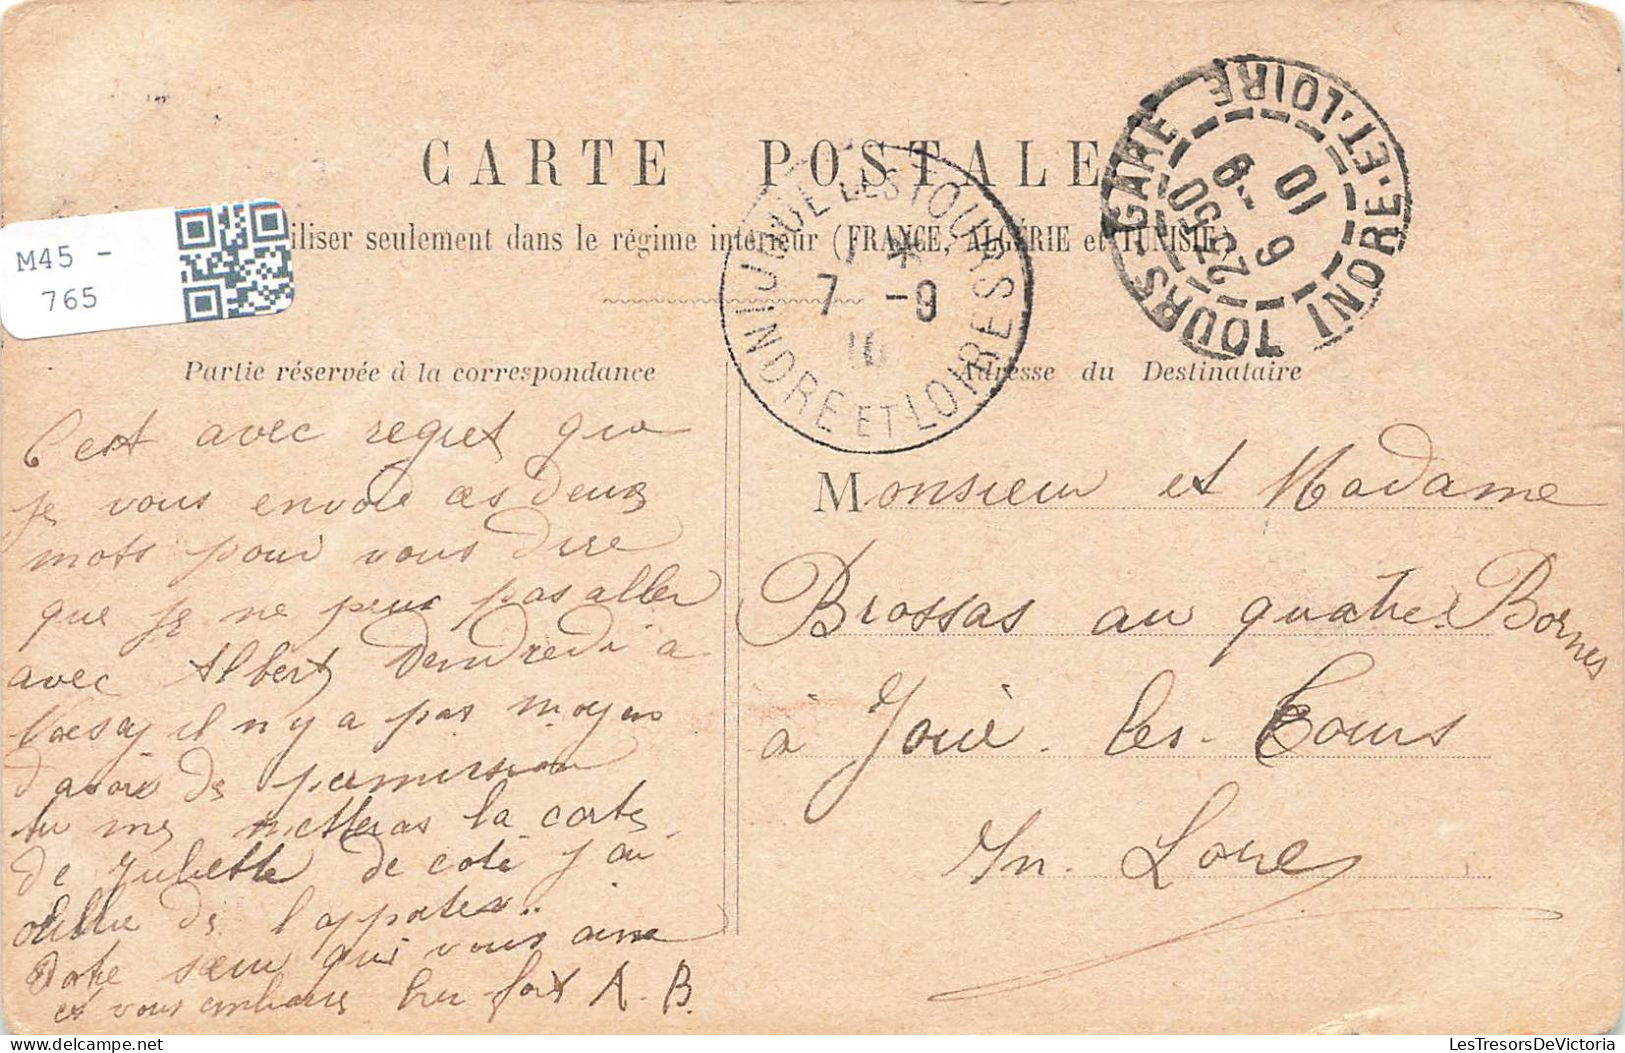 CARTE POSTALE
iliser seulement dans le régime intérieur (FRANCE, ALGÉRIE et TUNISIE)
M45 -
765
TOURS-GARE
INDRE-ET-LOIRE
23 50
6 -9
10
JOUÉ LES TOURS
7 -9
10
INDRE ET LOIRE
Partie réservée à la correspondance
Adresse du Destinataire
C'est avec regret que
je vous envoie ces deux
mots pour vous dire
que je ne peux pas aller
avec Albert Vendredi à
il n y a pas moyen
d'avoir de permission
tu me metteras la carte
de Juliette de coté j'ai
oublié de l'apporter..
votre sœur qui vous aime
et vous embrasse bien fort A. B.
Monsieur et Madame
Brossas au quatre Bornes
à Joué-les-Tours
In. Loire
LesTresorsDeVictoria
delcampe.net LesTresorsDeVictoria